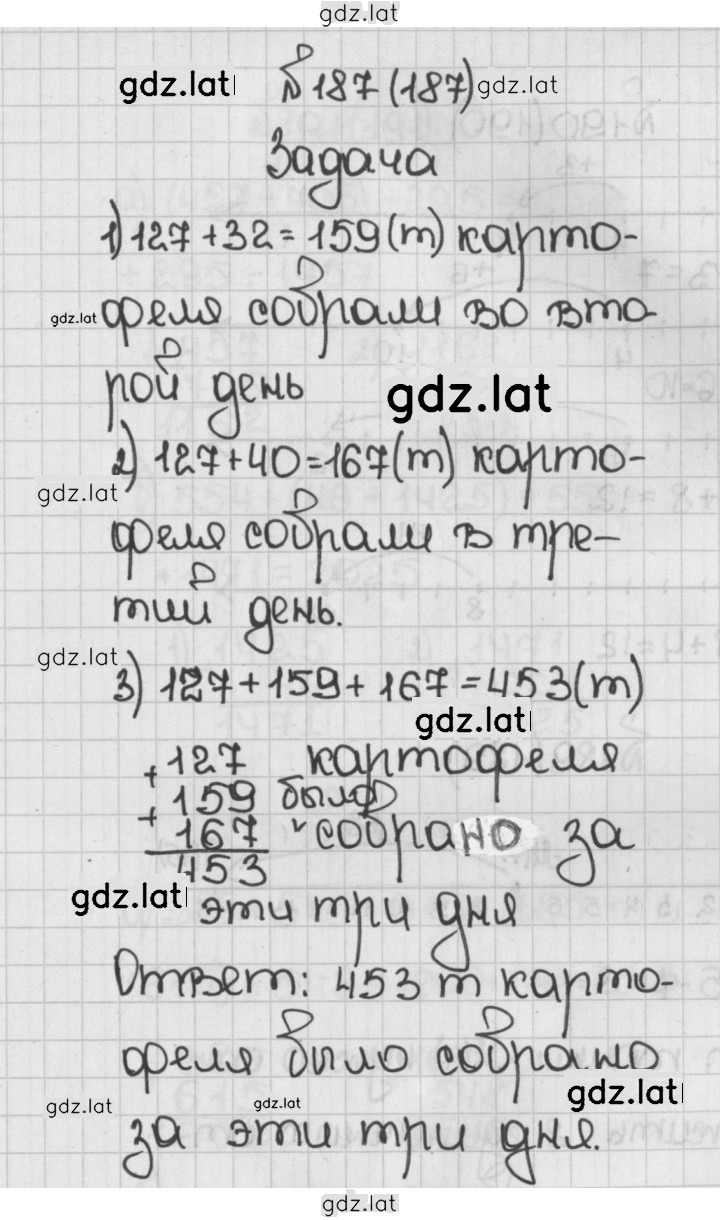 gdz.lat
gdz.lat № 187 (187) gdz.lat
Задача
1) 127 + 32 = 159 (т) карто-
gdz.lat феля собрали во вто-
рой день gdz.lat
2) 127 + 40 = 167 (т) карто-
gdz.lat
феля собрали в тре-
тий день.
gdz.lat
3) 127 + 159 + 167 = 453 (т)
gdz.lat
+ 127 картофеля
159 было
+ 167 собрано за
453
gdz.lat эти три дня
Ответ: 453 т карто-
феля было собрано
gdz.lat gdz.lat gdz.lat
за эти три дня.
gdz.lat